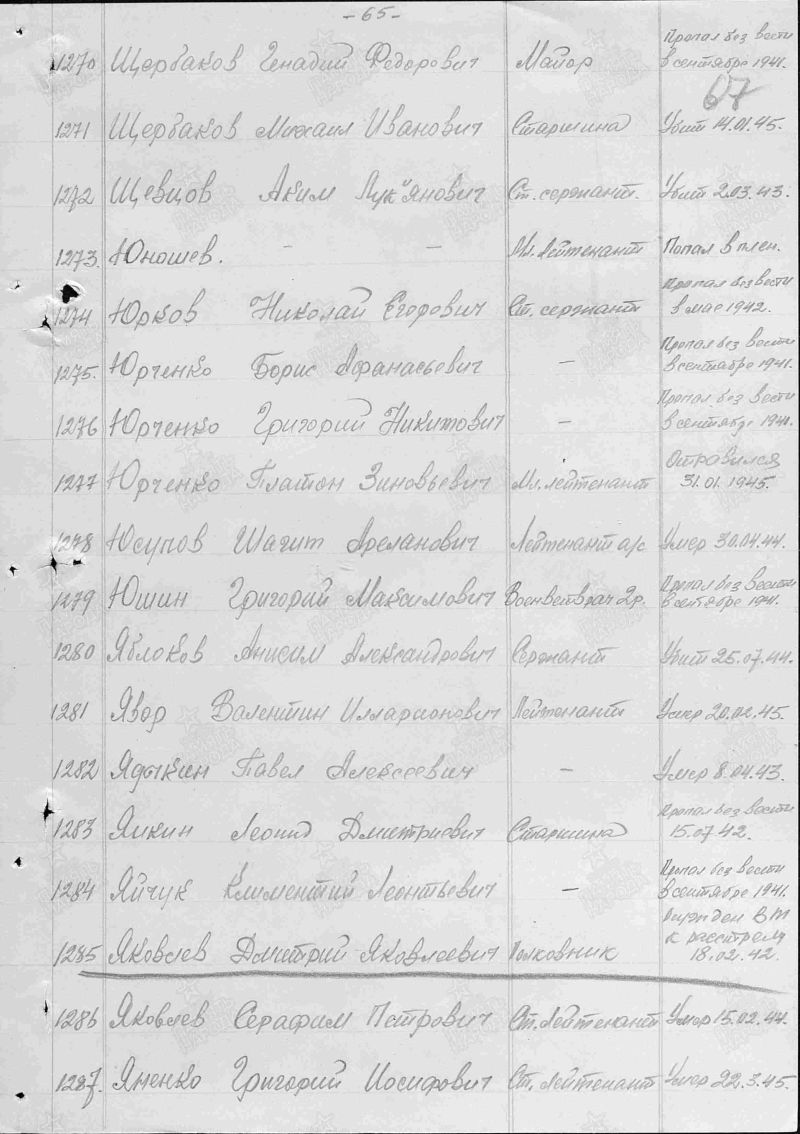 -65-
1270 Щербаков Генадий Федорович Майор Пропал без вести
в сентябре 1941.
67
1271 Щербаков Михаил Иванович Старшина Убит 14.01.45.
1272 Щевцов Аким Лук"янович Ст. сержант. Убит 2.03.43.
1273. Юношев. - - Мл. Лейтенант Попал в плен.
1274 Юрков Николай Егорович Ст. сержант Пропал без вести
в мае 1942.
1275. Юрченко Борис Афанасьевич - Пропал без вести
в сентябре 1941.
1276 Юрченко Григорий Никитович - Пропал без вести
в сентябре 1941.
1277 Юрченко Платон Зиновьевич Мл. лейтенант Отравился
31.01.1945.
1278 Юсупов Шагит Арсланович Лейтенант а/с Умер 30.04.44.
1279 Юшин Григорий Максимович Военветврач 2р. Пропал без вести
в сентябре 1941.
1280 Яблоков Анисим Александрович Сержант Убит 25.07.44.
1281 Явор Валентин Илларионович Лейтенант Умер 20.02.45.
1282 Ядыкин Павел Алексеевич - Умер 8.04.43.
1283 Яикин Леонид Дмитриевич Старшина Пропал без вести
15.07.42.
1284 Яйчук Климентий Леонтьевич - Пропал без вести
в сентябре 1941.
1285 Яковлев Дмитрий Яковлевич Полковник Осужден ВТ
к расстрелу
18.02.42.
1286 Яковлев Серафим Петрович Ст. Лейтенант Умер 15.02.44.
1287. Яненко Григорий Иосифович Ст. Лейтенант Умер 22.3.45.